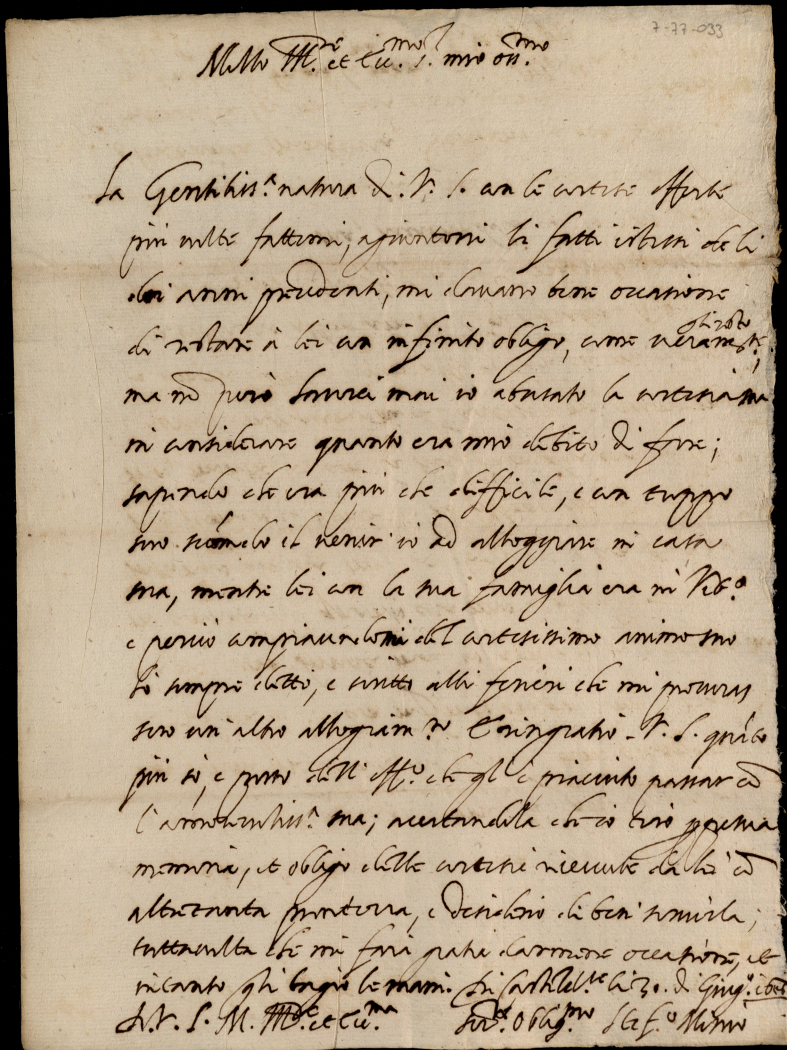 7-77-033
Molto Ill.re et Ecc.mo S.r mio oss.mo
La Gentiliss.a natura di V. S. con le cortese offerte
più volte fattemi, agiuntovi li fatti istessi de li
doi anni precedenti, mi danno bene occasione
di restare à lei con infinito obligo, come veram.te gli resto
ma nõ però haverei mai io abusato la cortesia sua
in considerare quanto era mio debito di fare;
sapendo che era più che difficile, e con troppo
suo scõmodo il venir io ad alloggiare in casa
sua, mentre lei con la sua famiglia era in
e perciò compiacendomi del cortesissimo animo suo
hò sempre detto, e scritto alli forieri che mi procuras
sero un'altro allogiam.to E ringratio V. S. quãto
più sò, e posso dell' off.o che gl' è piaciuto passar cõ
l'amorevoliss.a sua; accertandola che io terrò perpetua
memoria, et obligo delle cortesie ricevute da lei cõ
altretanta prontezza, e desiderio di ben servirla;
tuttavolta che mi farà gratia darmene occasione, et
in tanto gli bagio le mani. Di li 30. di Giug.o
Di V. S. M. Ill.re et Ecc.ma
Ser.re Oblig.mo